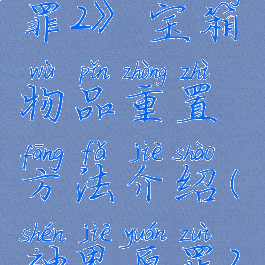 罪2》 宝箱
wù pǐn zhòng zhì
物品重置
fāng fǎ jiè shào
方法介绍(
shén jiè yuán zuì
神界原罪2